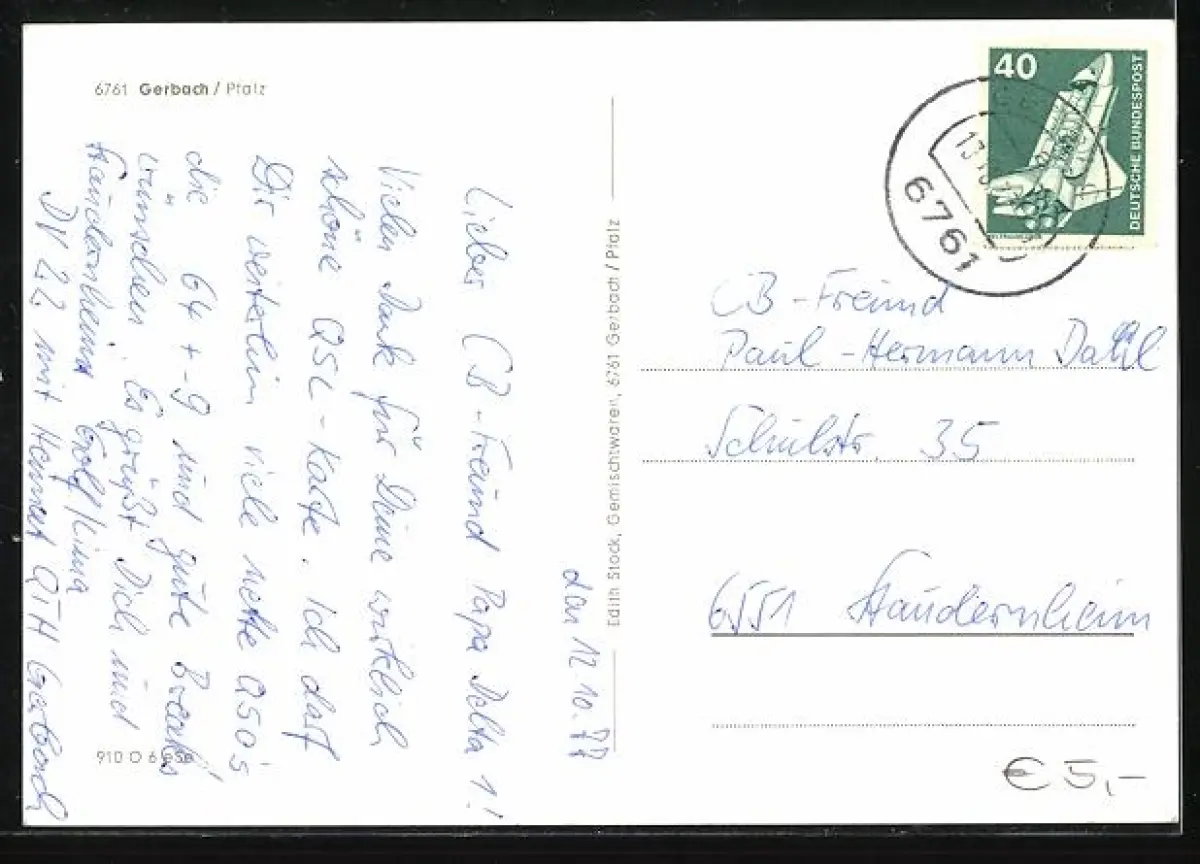 6761 Gerbach / Pfalz
den 12.10.77
Lieber CB-Freund Papa Delta 1!
Vielen Dank für Deine wirklich
schöne QSL-Karte. Ich darf
Dir weiterhin viele nette QSO's
die 64 + - 9 und gute Breaks
wünschen. Es grüßt Dich und
Staudernheim Golf/Lima
DV 22 mit Heimat QTH Gerbach
910 O 6 eSe
Edith Stock, Gemischtwaren, 6761 Gerbach / Pfalz
40
DEUTSCHE BUNDESPOST
6761
CB-Freund
Paul-Hermann Dahl
Schulstr. 35
6551 Staudernheim
€ 5,-